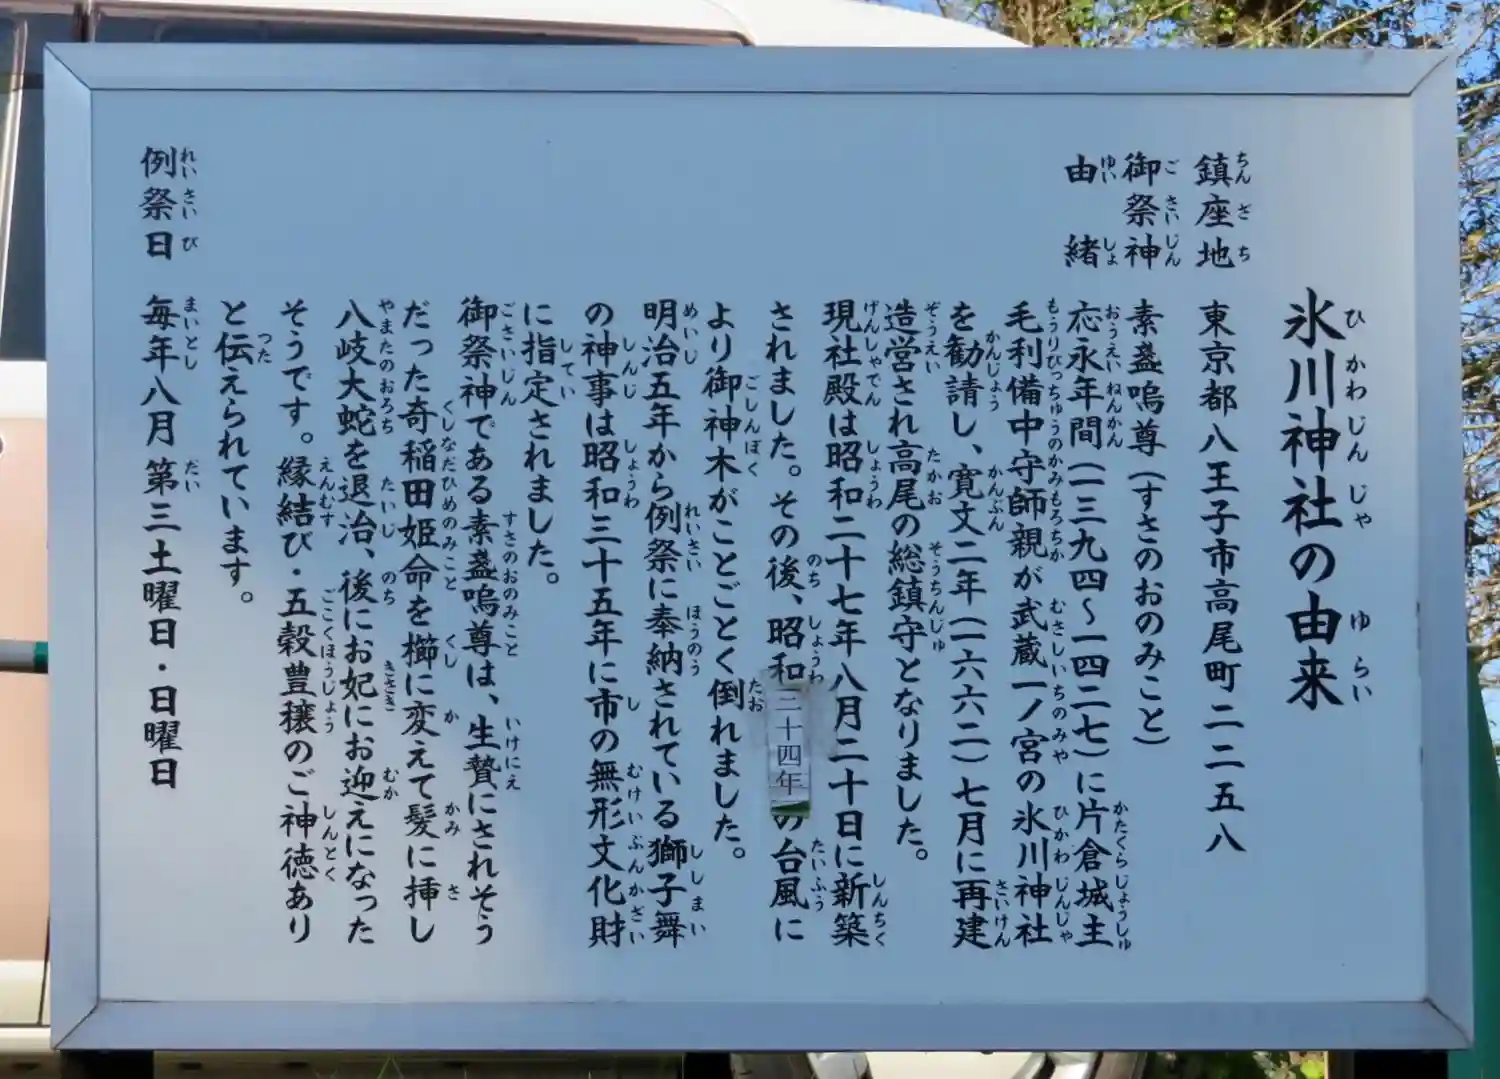 氷川神社の由来
鎮座地 東京都八王子市高尾町二二五八
御祭神 素盞嗚尊(すさのおのみこと)
由緒 応永年間(一三九四〜一四二七)に片倉城主
毛利備中守師親が武蔵一ノ宮の氷川神社
を勧請し、寛文二年(一六六二)七月に再建
造営され高尾の総鎮守となりました。
現社殿は昭和二十七年八月二十日に新築
されました。その後、昭和三十四年の台風に
より御神木がことごとく倒れました。
明治五年から例祭に奉納されている獅子舞
の神事は昭和三十五年に市の無形文化財
に指定されました。
御祭神である素盞嗚尊は、生贄にされそう
だった奇稲田姫命を櫛に変えて髪に挿し
八岐大蛇を退治、後にお妃にお迎えになった
そうです。縁結び・五穀豊穣のご神徳あり
と伝えられています。
例祭日 毎年八月第三土曜日・日曜日